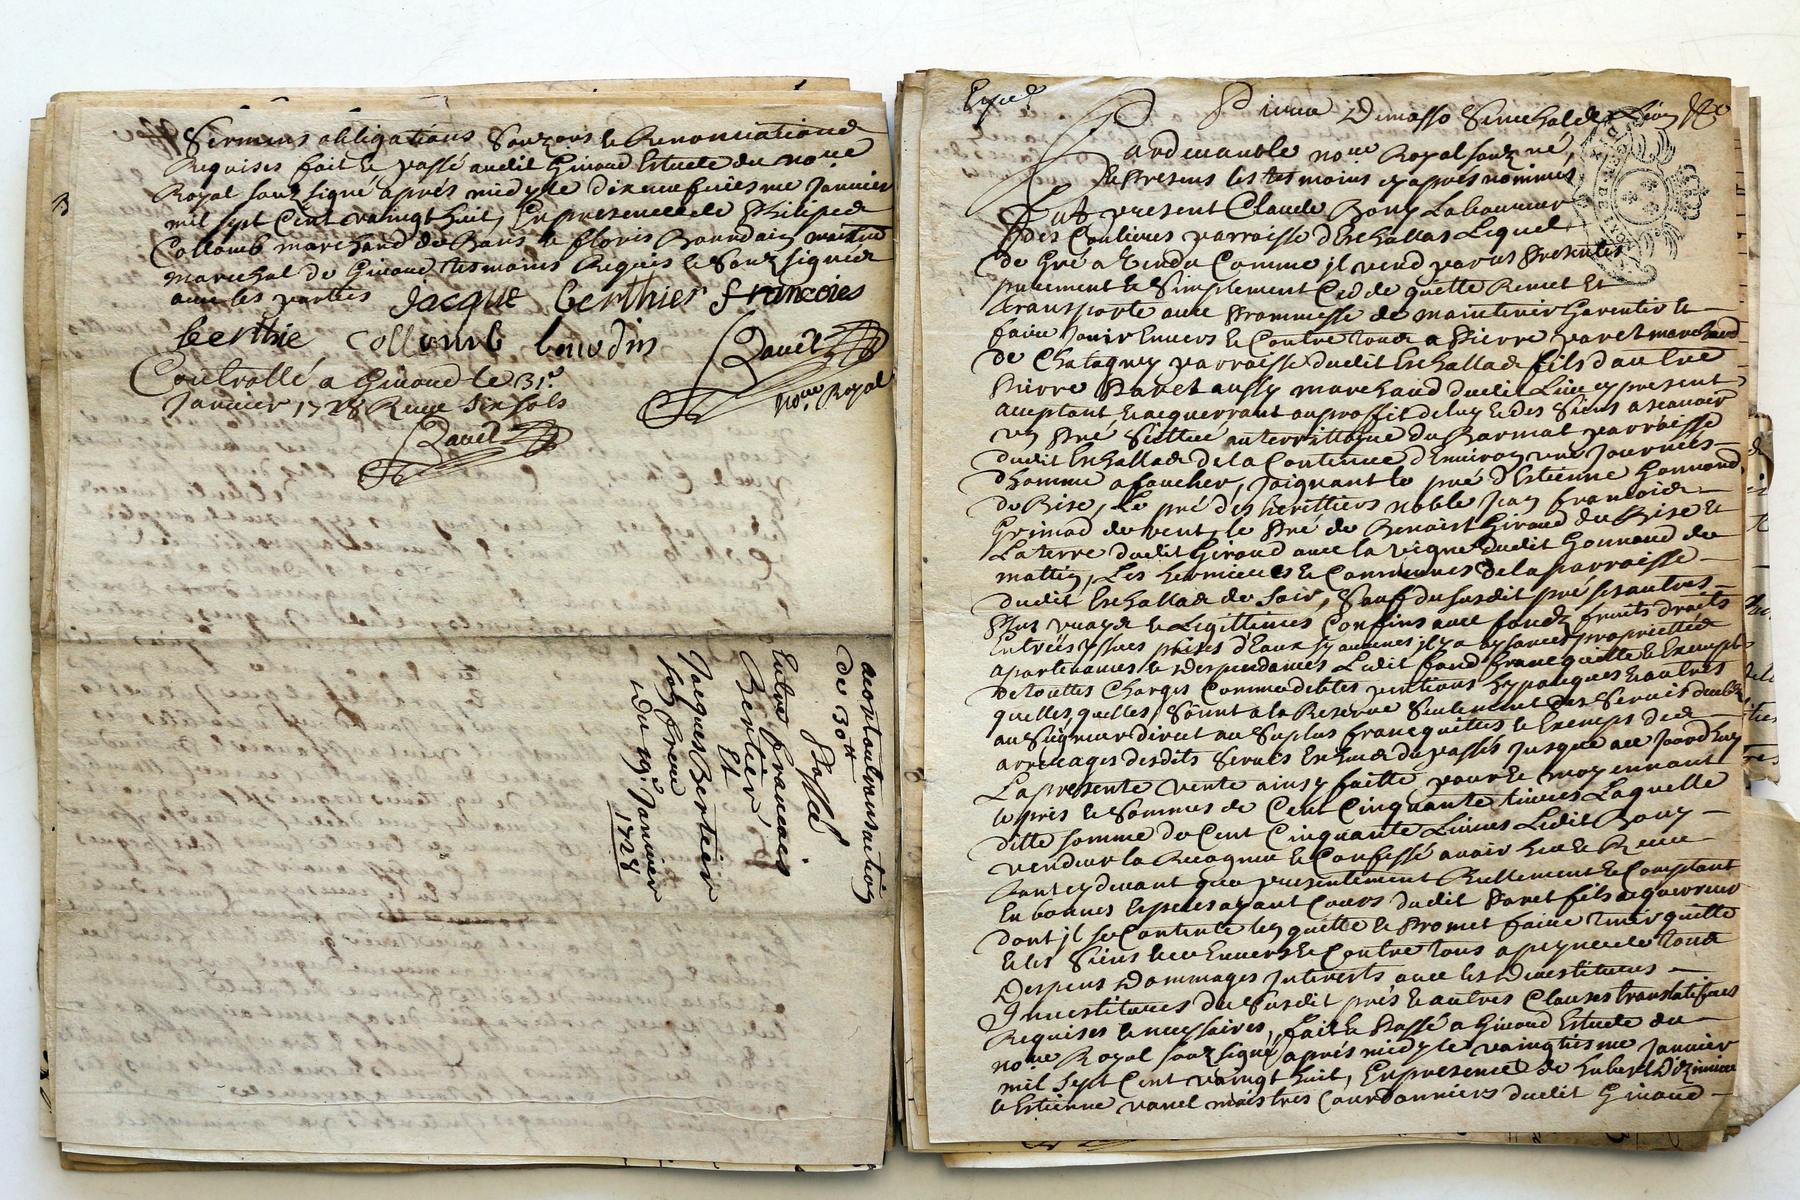 Sermens obligations Soumons & Renonciations
Requises fait & passé audit Giuoud Estude du no.re
Royal souz signé après midy le dixneufuiesme Januier
mil sept Cent vaingt huit, En presence de
Collomb marchand de & floris Bourdain maitre
mareschal de Giuoud tesmoins Requis & Souz signés
auec les parties Jacque berthier francoies
berthie collomb bourdin
Bauet
no.re Royal
Controllé a Giuoud le 31.e
Januier 1728 Receu six sols
Bauet
Accord & transaction
de 30#
Passéé
Entre francois
Bertier
Et
Jacques Bertier
son frere
Du 19.e Januier
1728
Exp.é
Pierre Dumasso Seneschal de Lion
Pardeuant le no.re Royal souz né,
& Presens les tesmoins cy apres nommés
fut present Claude Bony Laboureur
des Coulieures parroisse d'Eschallas Lequel
de Gré a vendu Comme il vend par ces Presentes
purement & Simplement Cedde quitte Remet Et
transporte auec Prommesse de maintenir Garentir &
faire Jouir Enuers & Contre tous a Pierre Paret marchand
de Chatagney parroisse dudit Eschallas fils d'autre
Pierre Paret aussy marchand dudit Lieu cy present
acceptant & acquerrant au proffit de luy & des Siens a scauoir
vn Pré Sittué au territtoire du parroisse
dudit Eschallas de la Contenue d'Enuiron une Journées
d'homme a faucher, Joignant le pré d'Estienne Gonnond
de Bise, Le pré des heritiers noble Jean francois
Grimod de vent, le Pré de Benoist Giraud de Bise &
La terre dudit Giraud auec la vigne dudit Gonnond de
mattin, Les & Communes de la parroisse
dudit Eschallas de Soir, Sauf du susdit pré ses autres
Plus vrays & Legittimes Confins auec fondz fruits droits
Entrées yssues prises d'Eaux sy aucunes il y a aysances proprietés
apartenances & despendances Ledit fond franc quitte & Exempt
de touttes Charges Commes debtes pentions hypoteques & autres
quelles quelles Soint a la Reserve Seulement des Seruis deubz
au Seigneur direct au Surplus franc quitte & Exempt des
arrerages desdits Seruis Escheus du passés Jusque au Jourdhuy
La presente vente ainsy faitte pour & moyennant
le pris & Somme de Cent Cinquante Liures Laquelle
ditte somme de Cent Cinquante Liures Ledit Bony
vendeur la Recogneu & Confessé auoir heu & Receu
tant cy deuant que presentement Réellement & Comptant
En bonnes Especes ayant Cours dudit Paret fils acquerreur
dont il se Contente Len quitte & Promet faire tenir quitte
& les Siens Enuers & Contre tous a peyne de tous
Despens Dommages Interests auec les Deuestitures
Inuestitures du Susdit pré & autres Clauses translatifues
Requises & necessaires, fait & Passé a Giuoud Estude du
no.re Royal souz signé, apres midy le vaingtiesme Januier
mil Sept Cent vaingt huit, En presence de hubert
& Estienne varel maistres Courdonniers dudit Giuoud